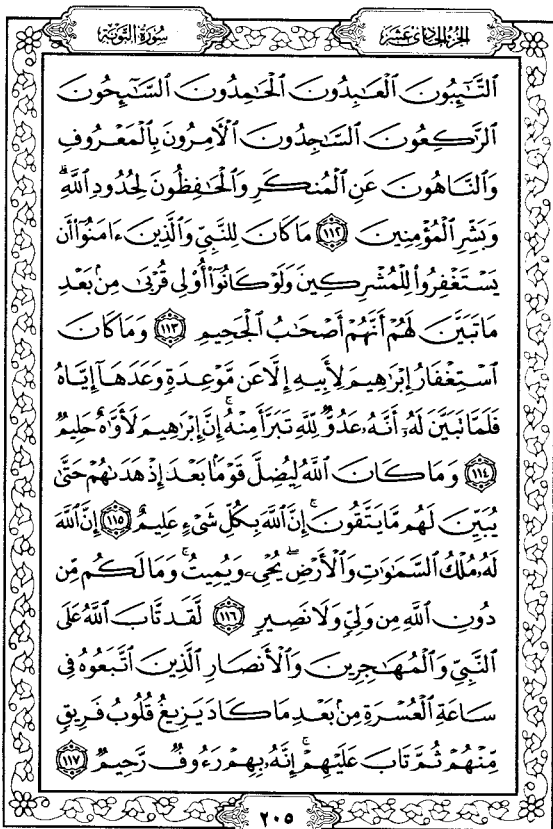 الجزء الحادي عشر
سورة التوبة
ٱلتَّـٰٓئِبُونَ ٱلْعَـٰبِدُونَ ٱلْحَـٰمِدُونَ ٱلسَّـٰٓئِحُونَ
ٱلرَّٰكِعُونَ ٱلسَّـٰجِدُونَ ٱلْأَمِرُونَ بِٱلْمَعْرُوفِ
وَٱلنَّاهُونَ عَنِ ٱلْمُنكَرِ وَٱلْحَـٰفِظُونَ لِحُدُودِ ٱللَّهِۗ
وَبَشِّرِ ٱلْمُؤْمِنِينَ ١١٢ مَا كَانَ لِلنَّبِيِّ وَٱلَّذِينَ ءَامَنُوٓا۟ أَن
يَسْتَغْفِرُوا۟ لِلْمُشْرِكِينَ وَلَوْ كَانُوٓا۟ أُو۟لِى قُرْبَىٰ مِنۢ بَعْدِ
مَا تَبَيَّنَ لَهُمْ أَنَّهُمْ أَصْحَـٰبُ ٱلْجَحِيمِ ١١٣ وَمَا كَانَ
ٱسْتِغْفَارُ إِبْرَٰهِيمَ لِأَبِيهِ إِلَّا عَن مَّوْعِدَةٍ وَعَدَهَآ إِيَّاهُ
فَلَمَّا تَبَيَّنَ لَهُۥٓ أَنَّهُۥ عَدُوٌّ لِّلَّهِ تَبَرَّأَ مِنْهُۚ إِنَّ إِبْرَٰهِيمَ لَأَوَّٰهٌ حَلِيمٌ
١١٤ وَمَا كَانَ ٱللَّهُ لِيُضِلَّ قَوْمًۢا بَعْدَ إِذْ هَدَىٰهُمْ حَتَّىٰ
يُبَيِّنَ لَهُم مَّا يَتَّقُونَۚ إِنَّ ٱللَّهَ بِكُلِّ شَىْءٍ عَلِيمٌ ١١٥ إِنَّ ٱللَّهَ
لَهُۥ مُلْكُ ٱلسَّمَـٰوَٰتِ وَٱلْأَرْضِۖ يُحْىِۦ وَيُمِيتُۚ وَمَا لَكُم مِّن
دُونِ ٱللَّهِ مِن وَلِىٍّ وَلَا نَصِيرٍ ١١٦ لَّقَد تَّابَ ٱللَّهُ عَلَى
ٱلنَّبِىِّ وَٱلْمُهَـٰجِرِينَ وَٱلْأَنصَارِ ٱلَّذِينَ ٱتَّبَعُوهُ فِى
سَاعَةِ ٱلْعُسْرَةِ مِنۢ بَعْدِ مَا كَادَ يَزِيغُ قُلُوبُ فَرِيقٍ
مِّنْهُمْ ثُمَّ تَابَ عَلَيْهِمْۚ إِنَّهُۥ بِهِمْ رَءُوفٌ رَّحِيمٌ ١١٧
٢٠٥